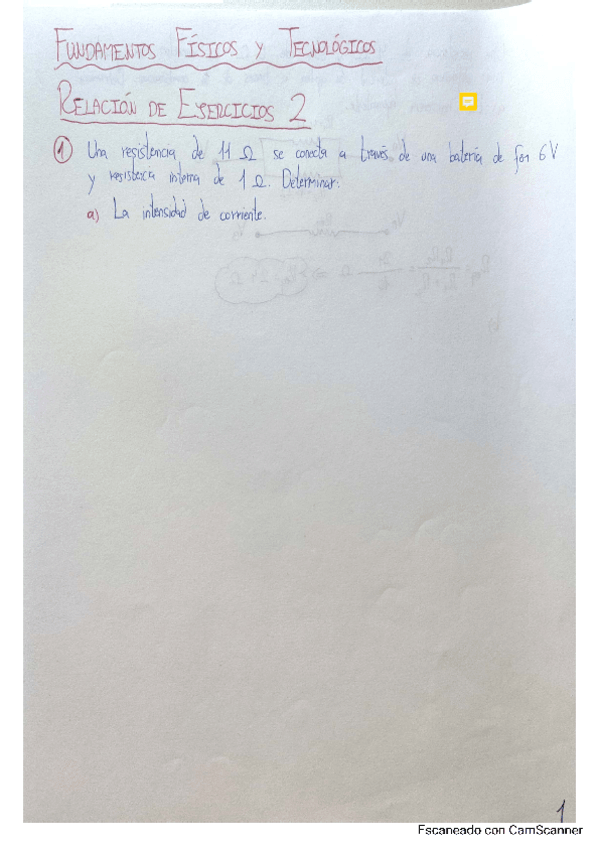 FUNDAMENTOS FÍSICOS Y TECNOLÓGICOS
RELACIÓN DE EJERCICIOS 2
1 Una resistencia de 11 Ω se conecta a través de una batería de fem 6V
y resistencia interna de 1 Ω. Determinar:
a) La intensidad de corriente.
1
Escaneado con CamScanner